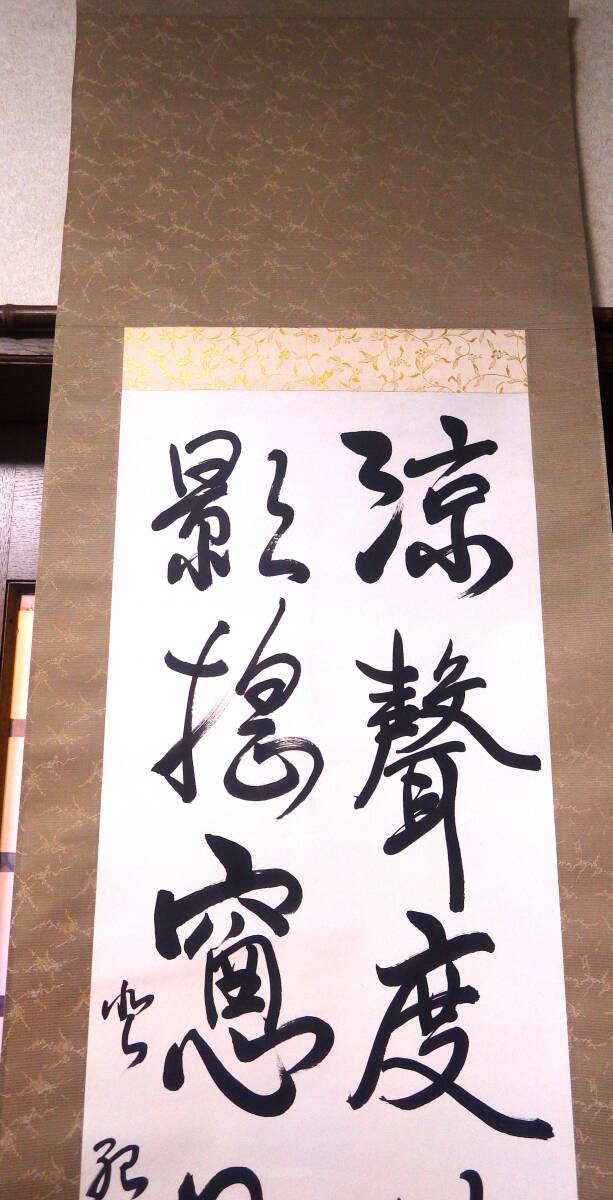 涼聲度
影搖窻